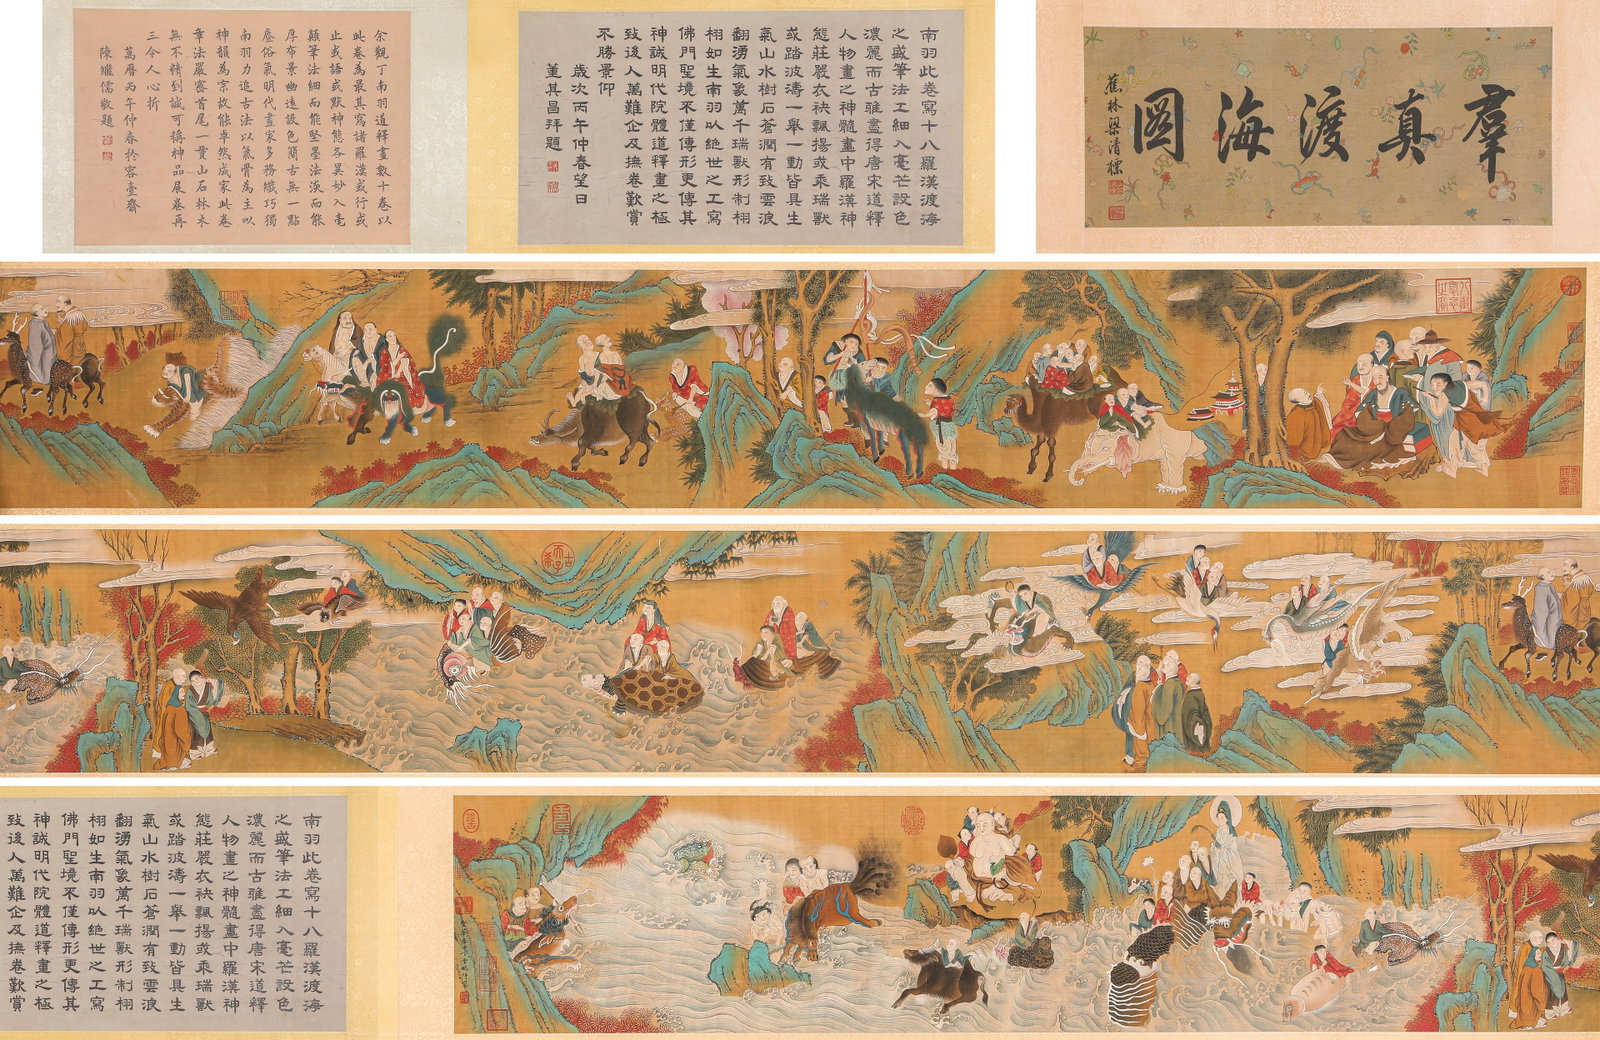 羣真渡海圖
蕉林梁清標
南羽此卷寫十八羅漢渡海
之盛筆法工細入毫芒設色
濃麗而古雅盡得唐宋道釋
人物畫之神髓畫中羅漢神
態莊嚴衣袂飄揚或乘瑞獸
或踏波濤一舉一動皆具生
氣山水樹石蒼潤有致雲浪
翻湧氣象萬千瑞獸形制栩
栩如生南羽以絕世之工寫
佛門聖境不僅傳形更傳其
神誠明代院體道釋畫之極
致後人萬難企及撫卷歎賞
不勝景仰
歲次丙午仲春望日
董其昌拜題
余觀丁南羽道釋畫數十卷以
此卷為最其寫諸羅漢或行或
止或語或默神態各異妙入毫
顛筆法細而能堅墨法淡而能
厚布景幽遠設色簡古無一點
塵俗氣明代畫家多務纖巧獨
南羽力追古法以氣骨為主以
神韻為宗故能卓然成家此卷
章法嚴密首尾一貫山石林木
無不精到誠可稱神品展卷再
三令人心折
萬曆丙午仲春於容臺齋
陳繼儒敬題
古稀天子
南羽此卷寫十八羅漢渡海
之盛筆法工細入毫芒設色
濃麗而古雅盡得唐宋道釋
人物畫之神髓畫中羅漢神
態莊嚴衣袂飄揚或乘瑞獸
或踏波濤一舉一動皆具生
氣山水樹石蒼潤有致雲浪
翻湧氣象萬千瑞獸形制栩
栩如生南羽以絕世之工寫
佛門聖境不僅傳形更傳其
神誠明代院體道釋畫之極
致後人萬難企及撫卷歎賞